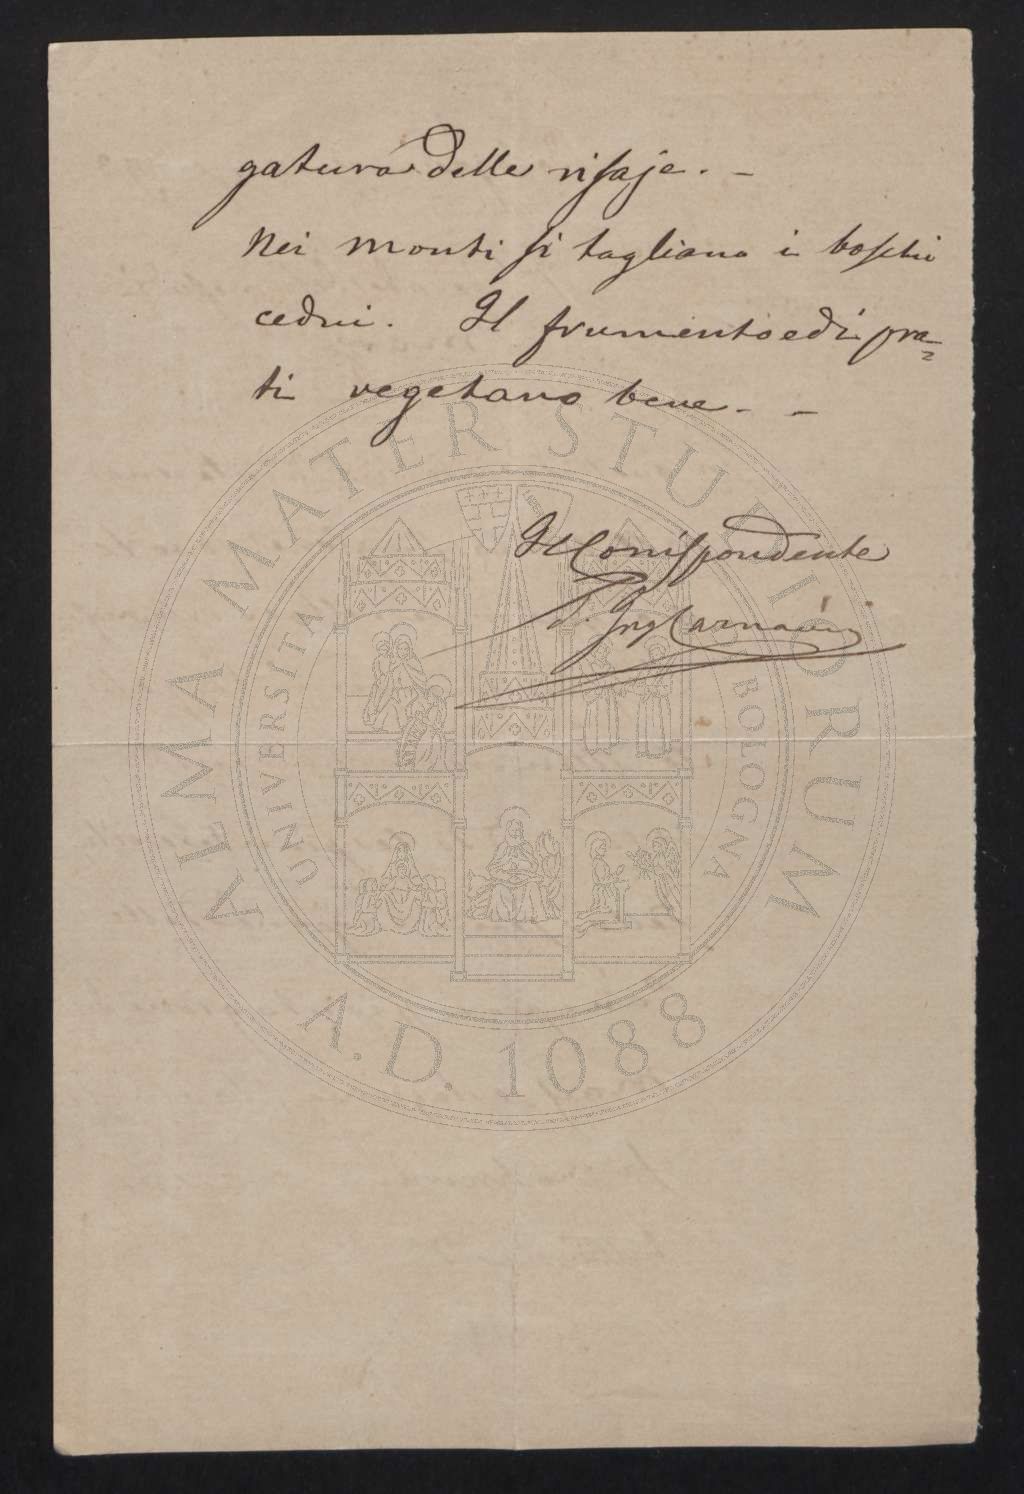 gatura delle risaje. –
Nei monti si tagliano i boschi
cedui. Il frumento ed i pra=
ti vegetano bene. –
Il Corrispondente
D. Ing
ALMA MATER STUDIORUM
UNIVERSITA
BOLOGNA
A.D. 1088